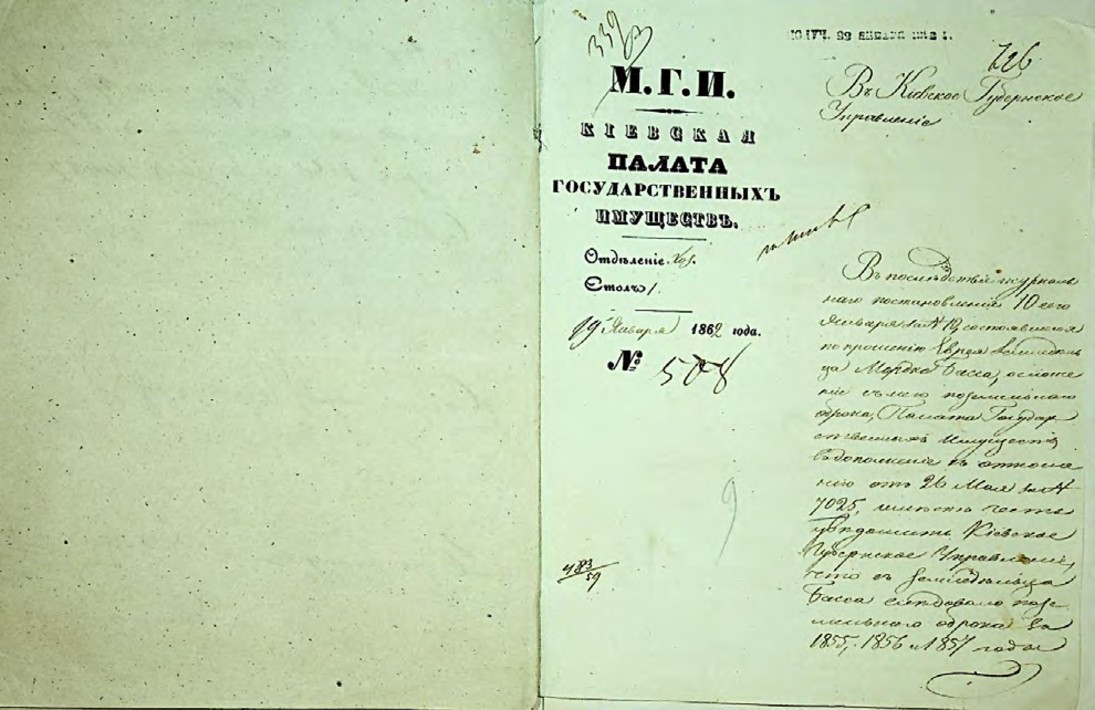 339
М.Г.И.
КІЕВСКАЯ
ПАЛАТА
ГОСУДАРСТВЕННЫХЪ
ИМУЩЕСТВЪ.
Отдѣленіе Хоз.
Столъ 1.
19 Января 1862 года.
№ 508
483/59
9
ПОЛУЧ. 22 ЯНВАРЯ 1862 г.
726
Въ Кіевское Губернское
Управленіе
Въ послѣдствіе журналь
наго постановленія 10 сего
Января за № 12, состоявшагося
по прошенію Еврея Земледѣль
ца Мордка Басса, о сложе
ніи съ него поземельнаго
оброка, Палата Государ
ственныхъ Имуществъ
въ дополненіе къ отноше
нію отъ 26 Мая за №
7025, имѣетъ честь
увѣдомить Кіевское
Губернское Управленіе,
что съ Земледѣльца
Басса слѣдовало позе
мельнаго оброка за
1855, 1856 и 1857 годы